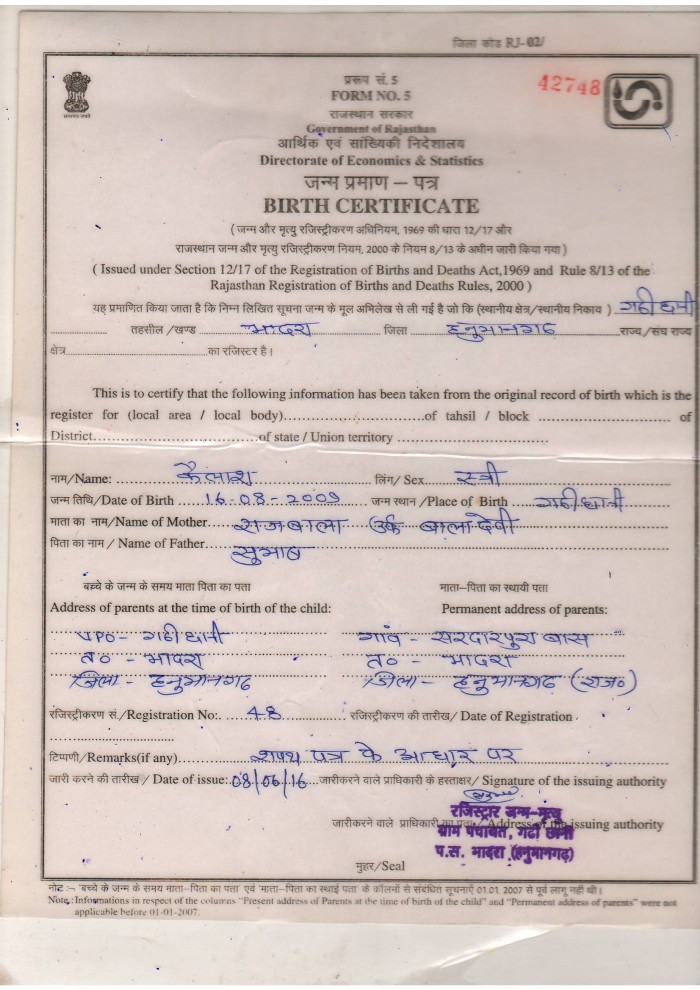 जिला कोड RJ-02/
प्ररूप सं. 5
FORM NO. 5
42748
राजस्थान सरकार
Government of Rajasthan
आर्थिक एवं सांख्यिकी निदेशालय
Directorate of Economics & Statistics
जन्म प्रमाण – पत्र
BIRTH CERTIFICATE
( जन्म और मृत्यु रजिस्ट्रीकरण अधिनियम, 1969 की धारा 12/17 और
राजस्थान जन्म और मृत्यु रजिस्ट्रीकरण नियम, 2000 के नियम 8/13 के अधीन जारी किया गया )
( Issued under Section 12/17 of the Registration of Births and Deaths Act,1969 and Rule 8/13 of the
Rajasthan Registration of Births and Deaths Rules, 2000 )
यह प्रमाणित किया जाता है कि निम्न लिखित सूचना जन्म के मूल अभिलेख से ली गई है जो कि (स्थानीय क्षेत्र/स्थानीय निकाय ) गढी छानी
तहसील /खण्ड भादरा जिला हनुमानगढ राज्य/संघ राज्य
क्षेत्र का रजिस्टर है।
This is to certify that the following information has been taken from the original record of birth which is the
register for (local area / local body) of tahsil / block of
District of state / Union territory
नाम/Name: कैलाश लिंग/ Sex स्त्री
जन्म तिथि/Date of Birth 16-08-2009 जन्म स्थान /Place of Birth गढी छानी
माता का नाम/Name of Mother राजबाला उर्फ बाला देवी
पिता का नाम / Name of Father सुभाष
बच्चे के जन्म के समय माता पिता का पता माता–पिता का स्थायी पता
Address of parents at the time of birth of the child: Permanent address of parents:
VPO- गढी छानी गांव- सरदारपुरा बास
त०- भादरा त०- भादरा
जिला- हनुमानगढ जिला- हनुमानगढ (राज०)
रजिस्ट्रीकरण सं./Registration No: 48 रजिस्ट्रीकरण की तारीख/ Date of Registration
टिप्पणी/Remarks(if any) शपथ पत्र के आधार पर
जारी करने की तारीख / Date of issue: 08/06/16 जारीकरने वाले प्राधिकारी के हस्ताक्षर/ Signature of the issuing authority
रजिस्ट्रार जन्म-मृत्यु
जारीकरने वाले प्राधिकारी का पता/ Address of the issuing authority
ग्राम पंचायत, गढी छानी
प.स. भादरा (हनुमानगढ़)
मुहर/Seal
नोट :– 'बच्चे के जन्म के समय माता-पिता का पता' एवं 'माता-पिता का स्थाई पता' के कॉलमों से संबंधित सूचनाऐं 01.01. 2007 से पूर्व लागू नहीं थी।
Note : Informations in respect of the columns "Present address of Parents at the time of birth of the child" and "Permanent address of parents" were not
applicable before 01-01-2007.